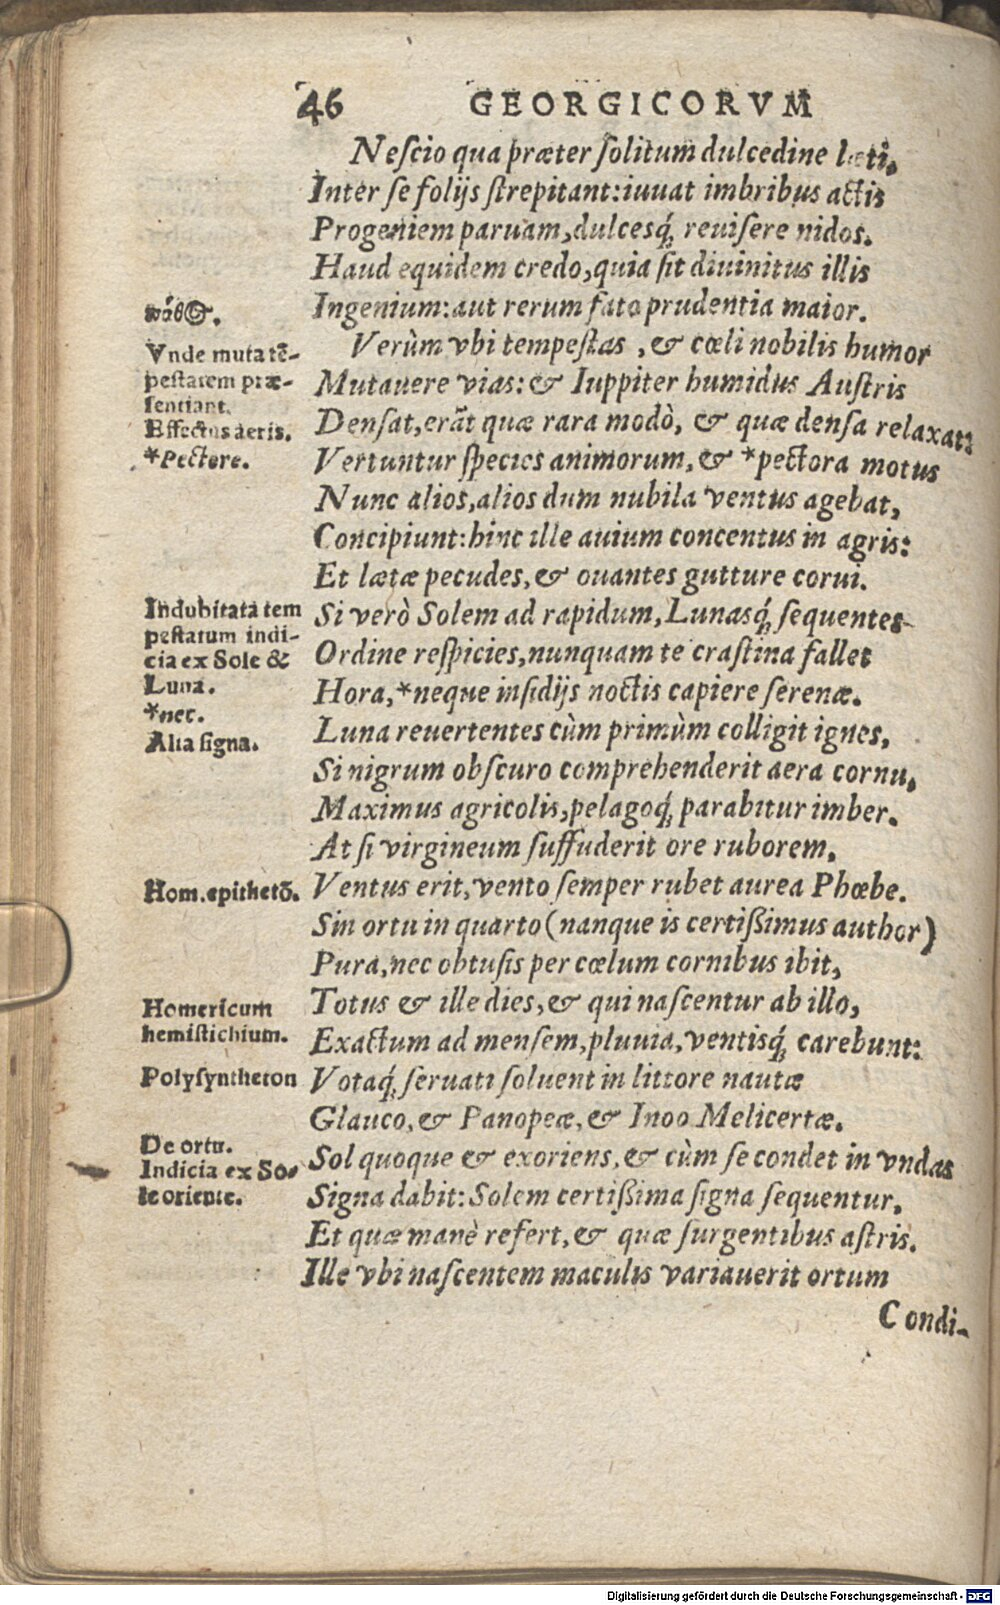 46 GEORGICORVM
Neſcio qua præter ſolitum dulcedine læti,
Inter ſe folijs ſtrepitant: iuuat imbribus actis
Progeniem paruam, dulcesq́; reuiſere nidos.
Haud equidem credo, quia ſit diuinitus illis
Ingenium: aut rerum fato prudentia maior.
Verùm vbi tempeſtas, & cœli nobilis humor
Mutauere vias: & Iuppiter humidus Auſtris
Denſat, erāt quæ rara modò, & quæ denſa relaxat:
Vertuntur ſpecies animorum, & *pectora motus
Nunc alios, alios dum nubila ventus agebat,
Concipiunt: hinc ille auium concentus in agris:
Et lætæ pecudes, & ouantes gutture corui.
Si verò Solem ad rapidum, Lunasq́; ſequentes
Ordine reſpicies, nunquam te craſtina fallet
Hora, *neque inſidijs noctis capiere ſerenæ.
Luna reuertentes cùm primùm colligit ignes,
Si nigrum obſcuro comprehenderit aera cornu,
Maximus agricolis, pelagoq́; parabitur imber.
At ſi virgineum ſuffuderit ore ruborem,
Ventus erit, vento ſemper rubet aurea Phœbe.
Sin ortu in quarto (nanque is certißimus author)
Pura, nec obtuſis per cœlum cornibus ibit,
Totus & ille dies, & qui naſcentur ab illo,
Exactum ad menſem, pluuia, ventisq́; carebunt:
Votaq́; ſeruati ſoluent in littore nautæ
Glauco, & Panopeæ, & Inoo Melicertæ.
Sol quoque & exoriens, & cùm ſe condet in vndas
Signa dabit: Solem certißima ſigna ſequentur,
Et quæ manè refert, & quæ ſurgentibus aſtris.
Ille vbi naſcentem maculis variauerit ortum
Condi-
Vnde muta tē-
peſtatem præ-
ſentiant.
Effectus aeris.
*Pectore.
Indubitata tem
peſtatum indi-
cia ex Sole &
Luna.
*nec.
Alia ſigna.
Hom. epithetō.
Homericum
hemiſtichium.
Polyſyntheton
De ortu.
Indicia ex So-
le oriente.
Digitalisierung gefördert durch die Deutsche Forschungsgemeinschaft - DFG